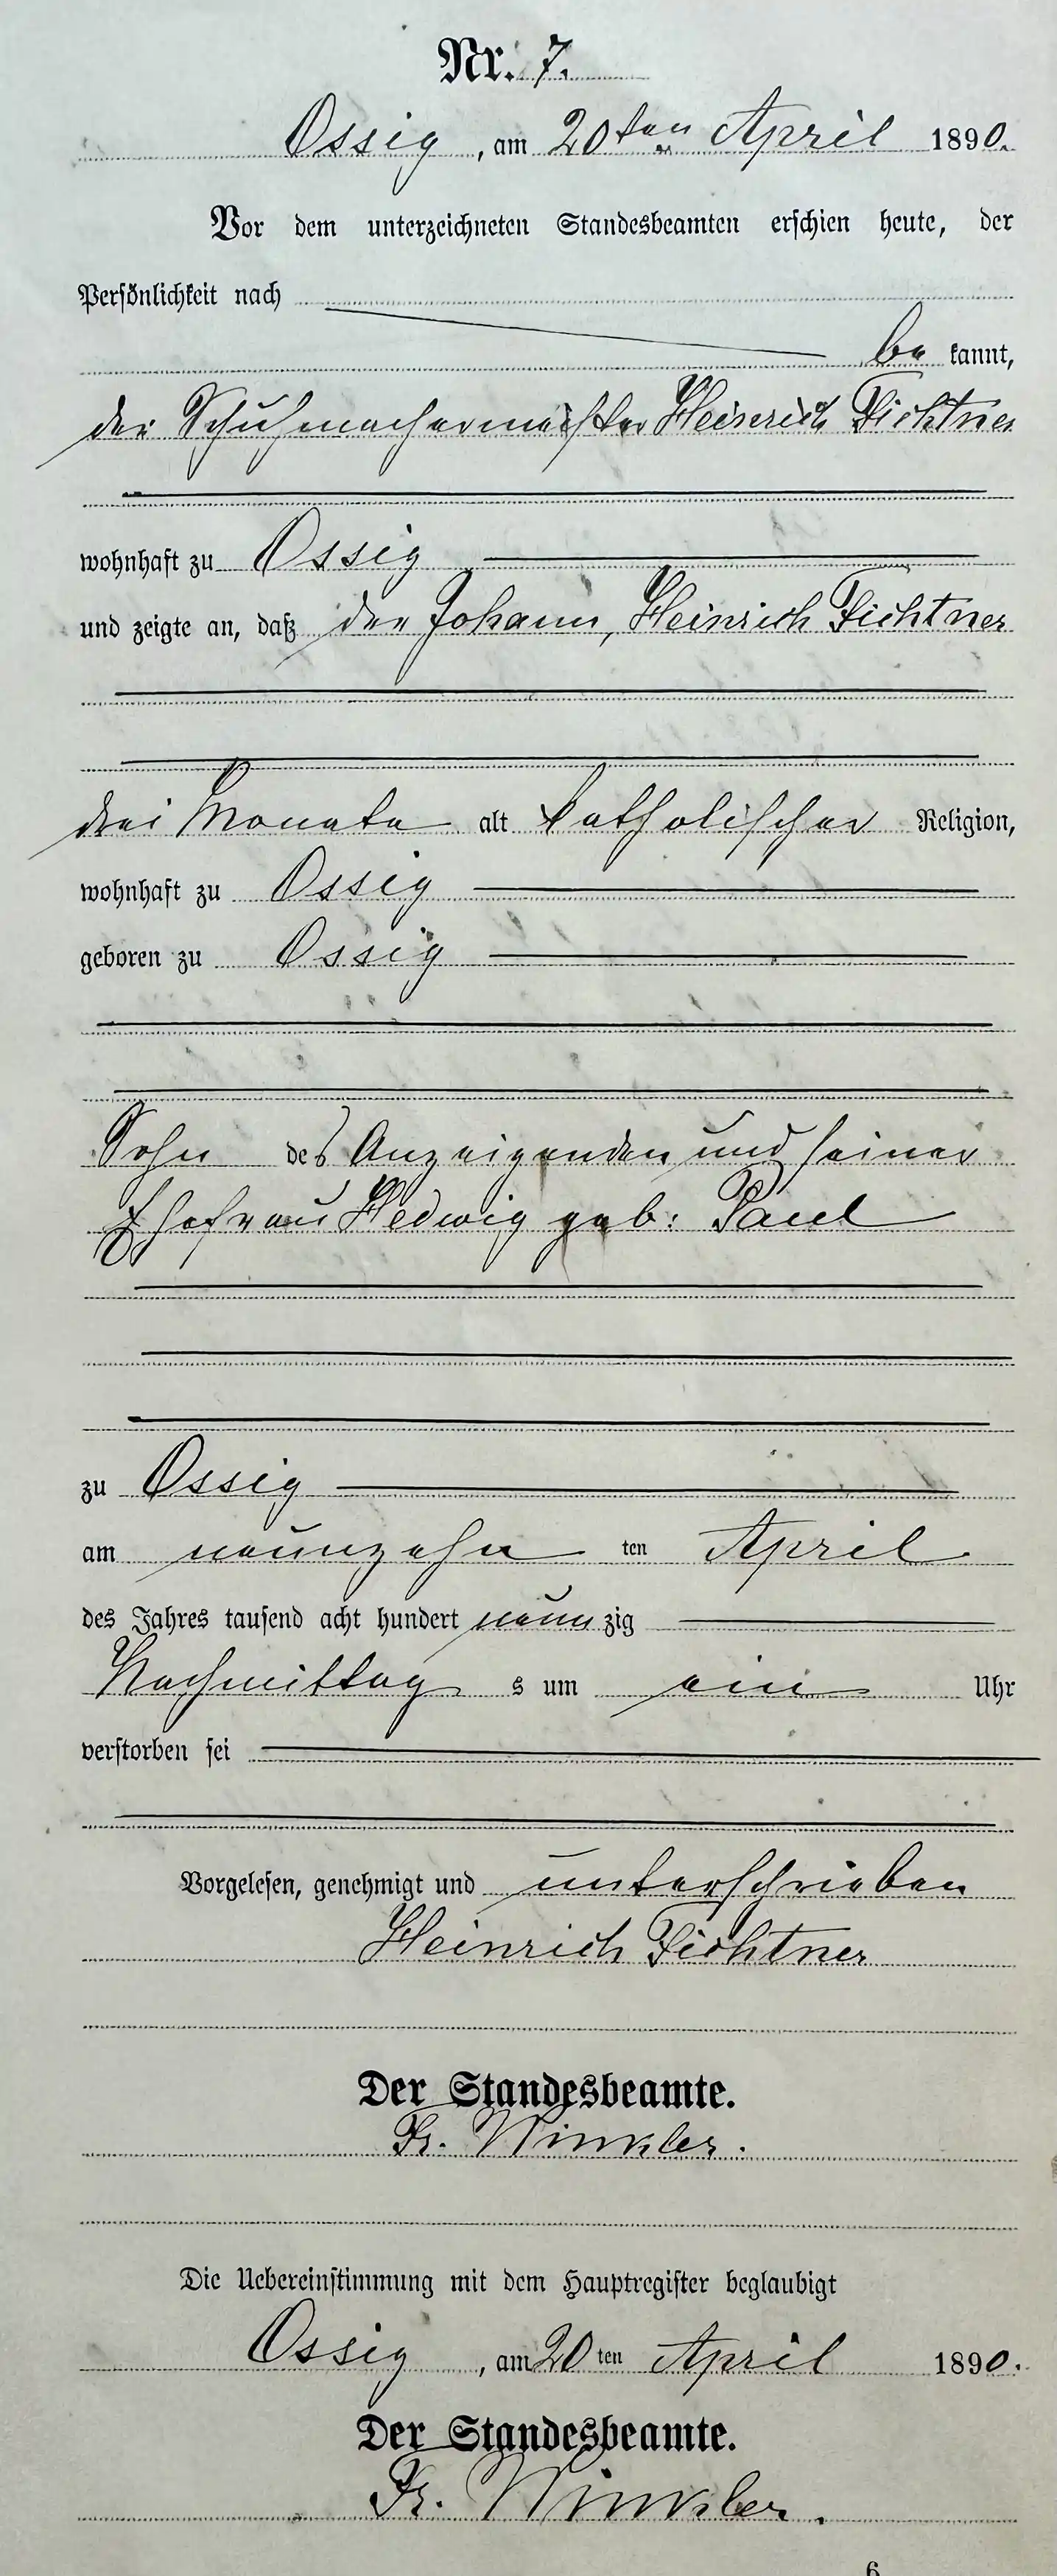 Nr. 7.
Ossig, am 20ten April 1890.
Vor dem unterzeichneten Standesbeamten erschien heute, der
Persönlichkeit nach
be kannt,
der Schuhmachermeister Heinrich Fichtner
wohnhaft zu Ossig
und zeigte an, daß der Johann, Heinrich Fichtner
drei Monate alt katholischer Religion,
wohnhaft zu Ossig
geboren zu Ossig
Sohn des Anzeigenden und seiner
Ehefrau Hedwig geb. Paul
zu Ossig
am neunzehn ten April
des Jahres tausend acht hundert neun zig
Nachmittag s um ein Uhr
verstorben sei
Vorgelesen, genehmigt und unterschrieben
Heinrich Fichtner
Der Standesbeamte.
Fr. Winkler.
Die Uebereinstimmung mit dem Hauptregister beglaubigt
Ossig, am 20 ten April 1890.
Der Standesbeamte.
Fr. Winkler.
6